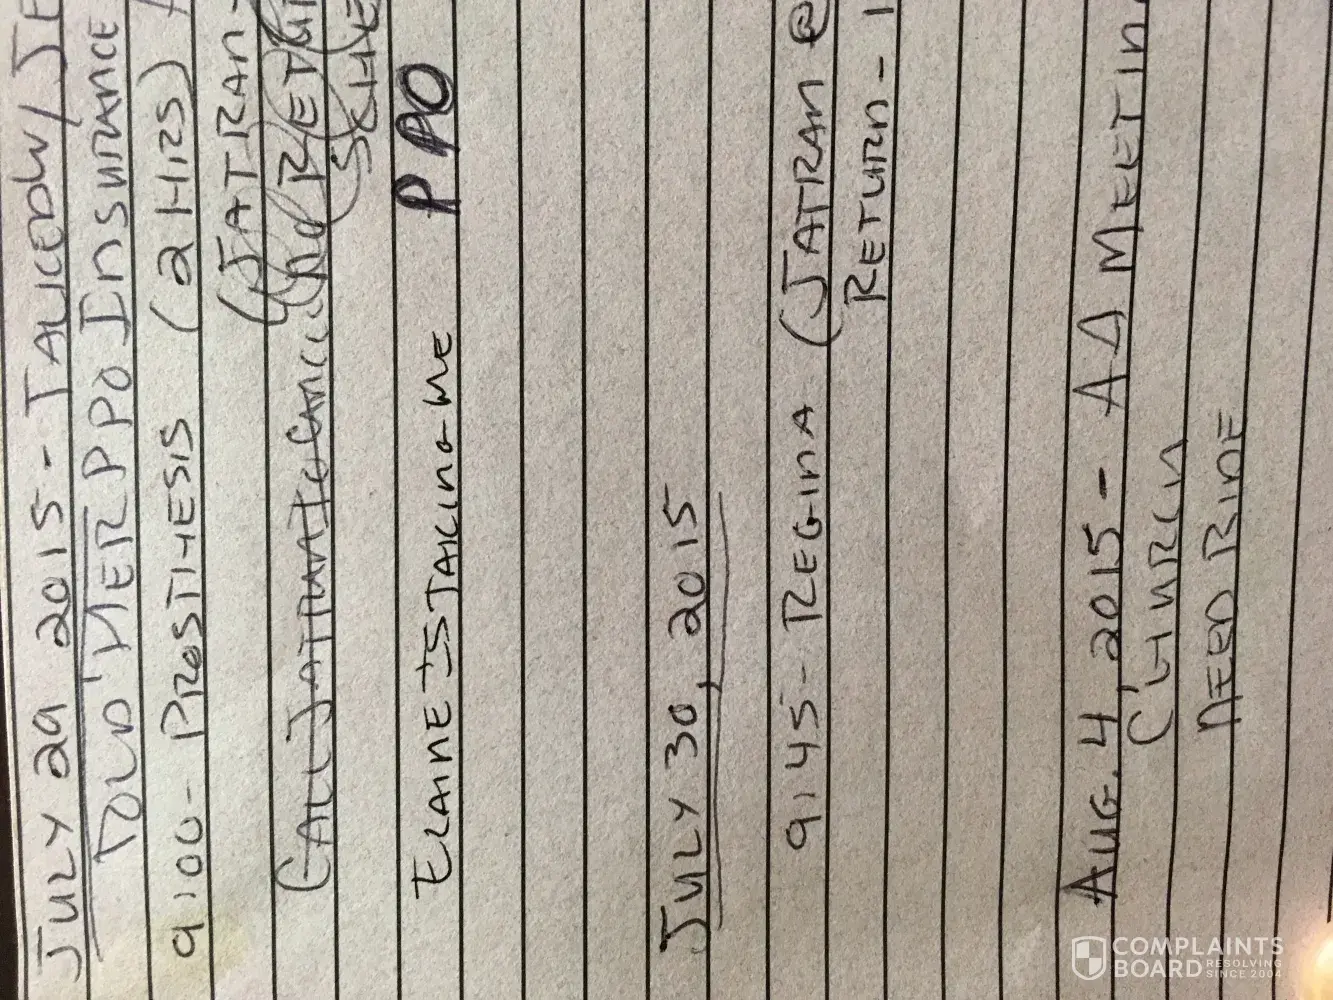 JULY 29 2015 - TALKED W/ JE
TOLD HER PPO INSURANCE
9:00 - PROSTHESIS (2 HRS)
(JATRAN -
CALL JATRAN TO CANCEL RETU
SCHE
ELAINE'S TAKING ME PPO
JULY 30, 2015
9:45 - REGINA (JATRAN @
RETURN - 1
AUG. 4, 2015 - AA MEETIN
CHURCH
NEED RIDE
COMPLAINTS
BOARD RESOLVING
SINCE 2004